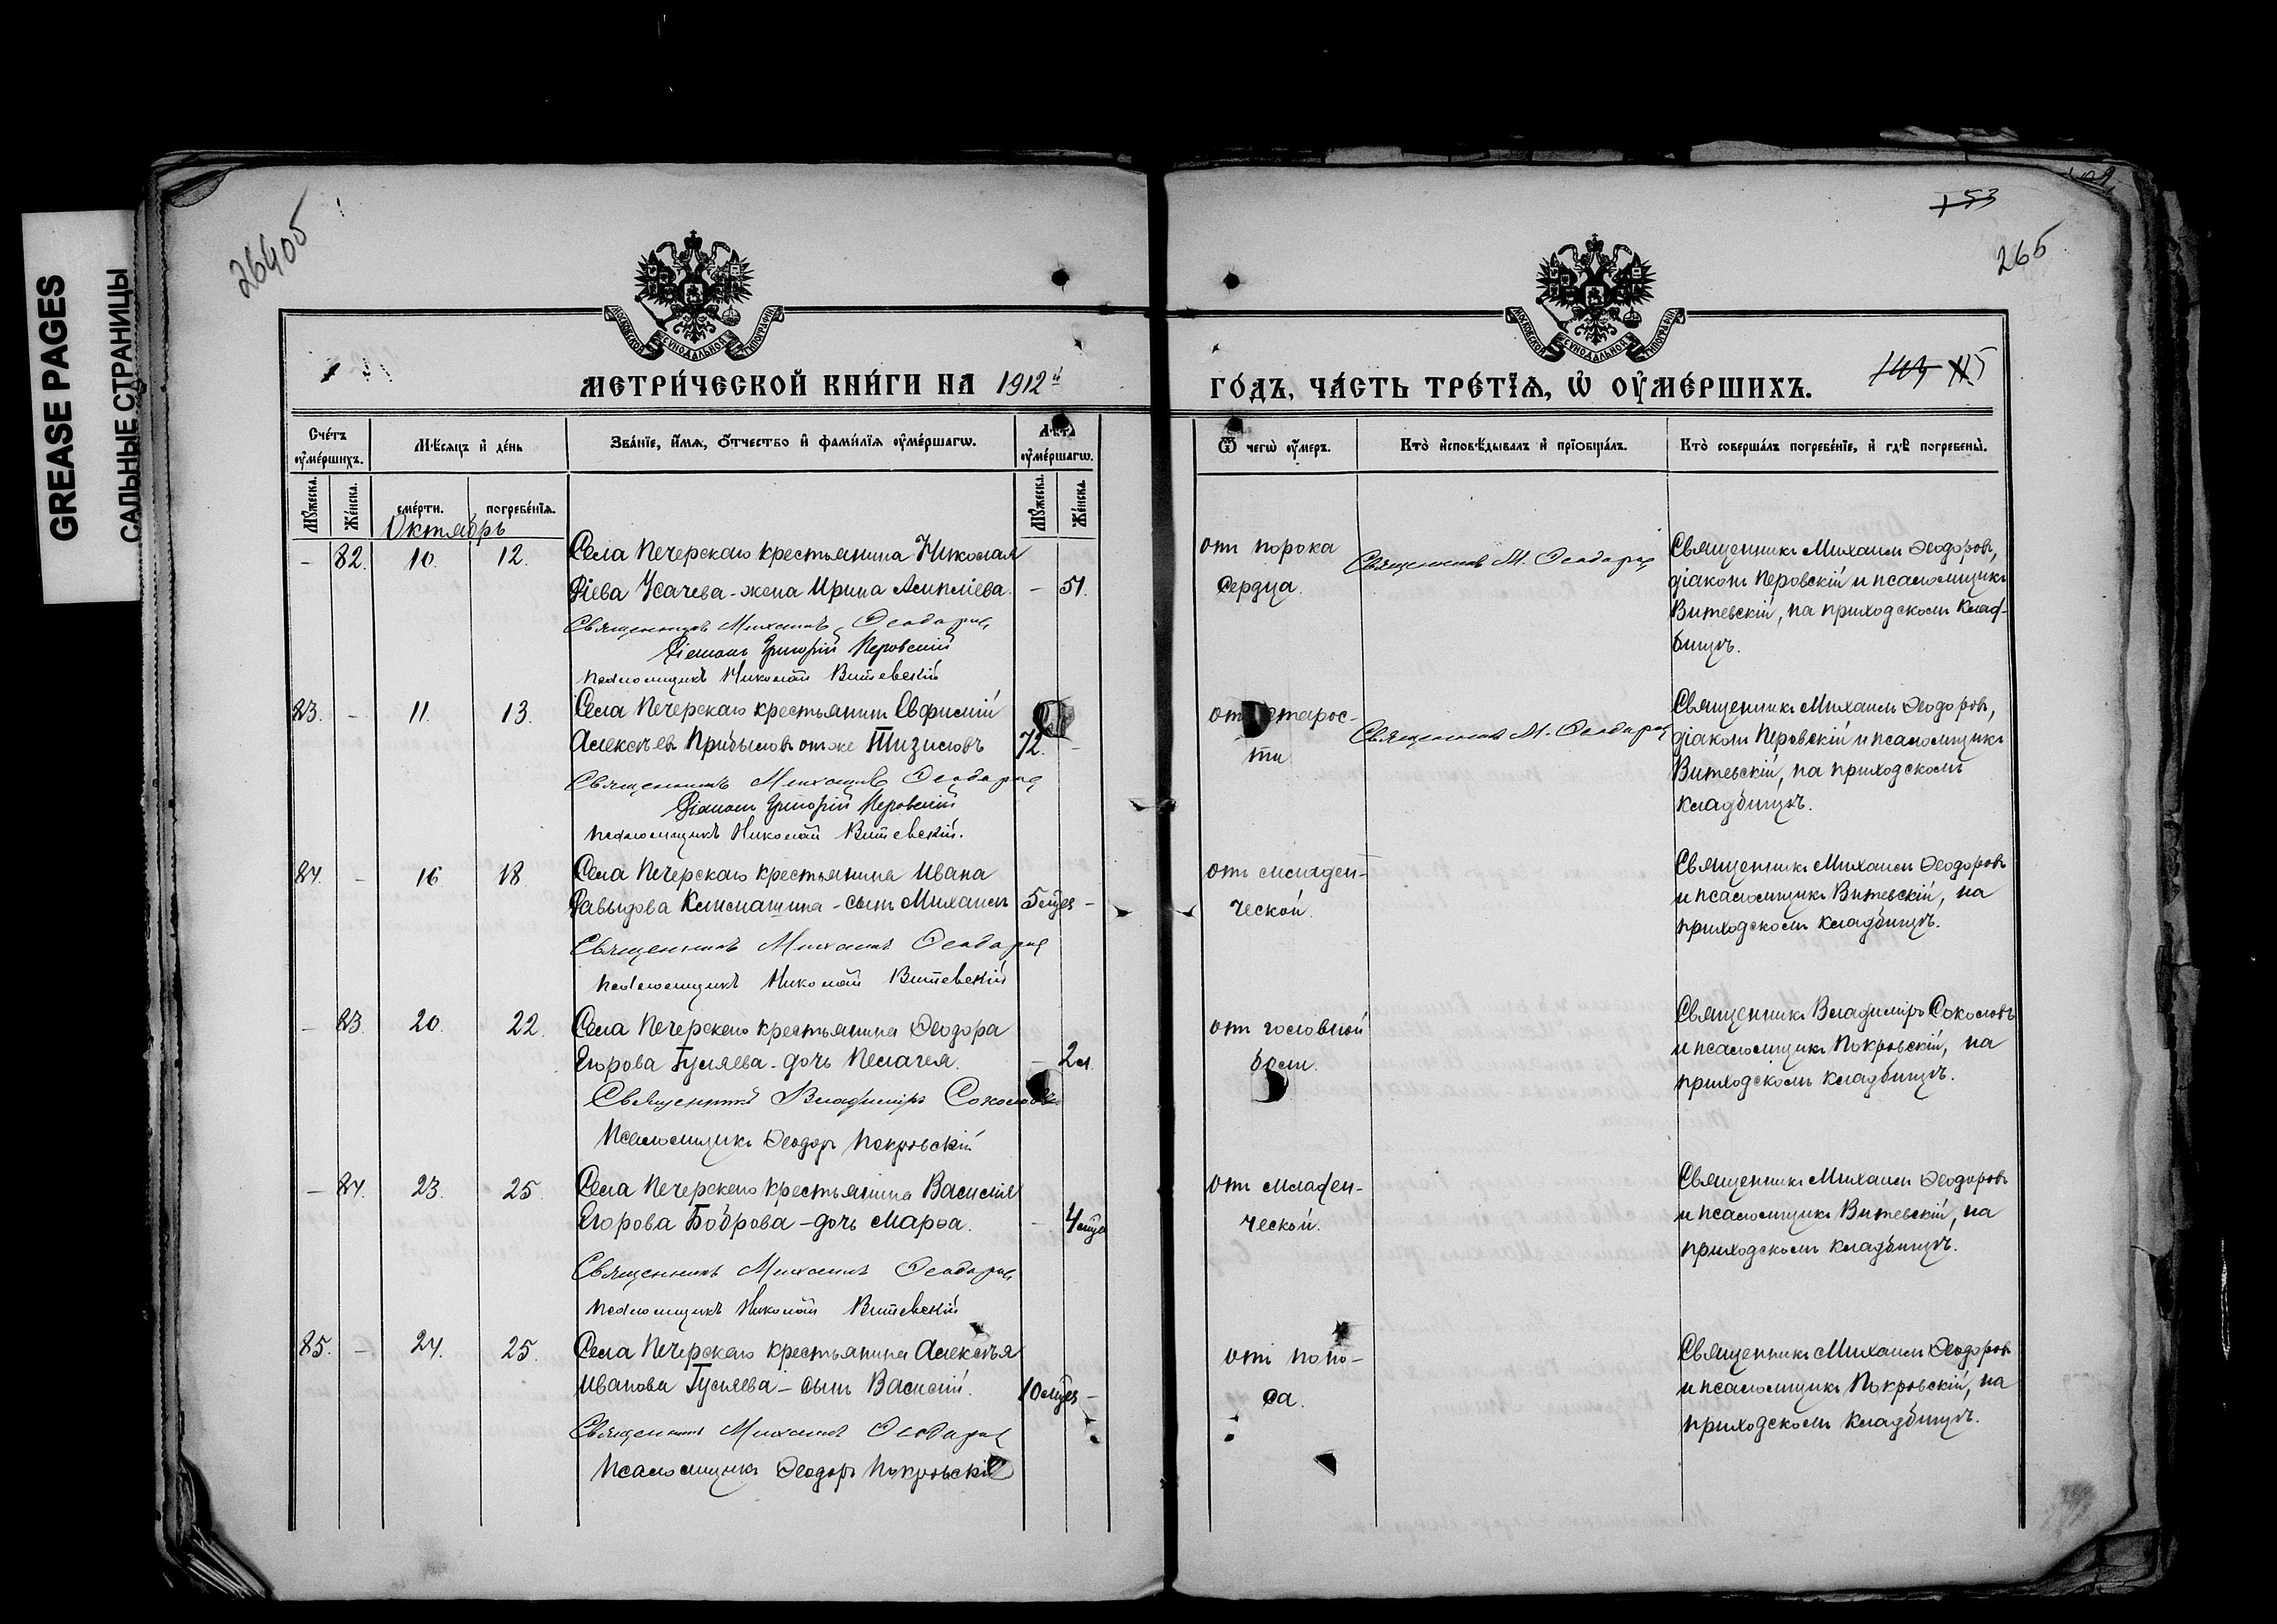 GREASE PAGES
САЛЬНЫЕ СТРАНИЦЫ
26405
153
265
МОСКОВСКОЙ СѴНОДАЛЬНОЙ ТИПОГРАФІИ
МОСКОВСКОЙ СѴНОДАЛЬНОЙ ТИПОГРАФІИ
МЕТРИ́ЧЕСКОЙ КНИ́ГИ НА 1912й
ГО́ДЪ, ЧА́СТЬ ТРЕ́ТІѦ, Ѡ҆ ОУ҆МЕ́РШИХЪ.
Сче́тъ оу҆ме́ршихъ.
Мѣ́сѧцъ и҆ де́нь
Зва́нїе, и҆́мѧ, ѻ҆́тчество и҆ фами́лїѧ оу҆ме́ршагѡ.
Лѣта оу҆ме́ршагѡ.
Ѿ чегѡ̀ оу҆́меръ.
Кто̀ и҆сповѣ́дывалъ и҆ прїѻбща́лъ.
Кто̀ соверша́лъ погребе́нїе, и҆ гдѣ̀ погребены̀.
Мꙋ́жеска.
Же́нска.
сме́рти.
погребе́нїѧ.
Мꙋ́жеска.
Же́нска.
Октябрь
- 82. 10. 12. Села Печерскаго крестьянина Николая
Діева Усачева - жена Ирина Асипліева. - 51.
Священникъ Михаилъ Ѳеодоровъ
Діаконъ Григорій Перовскій
Псаломщикъ Николай Витевскій
от порока
сердца.
Священникъ М. Ѳеодоровъ
Священникъ Михаилъ Ѳеодоровъ,
діаконъ Перовскій и псаломщикъ
Витевскій, на приходскомъ клад-
бищѣ.
83. - 11. 13. Села Печерскаго крестьянинъ Евфимій
Алексѣевъ Прибыловъ онже Тизиловъ 72. -
Священникъ Михаилъ Ѳеодоровъ
Діаконъ Григорій Перовскій
Псаломщикъ Николай Витевскій.
от старос-
ти
Священникъ М. Ѳеодоровъ
Священникъ Михаилъ Ѳеодоровъ,
діаконъ Перовскій и псаломщикъ
Витевскій, на приходскомъ
кладбищѣ.
84. - 16 18. Села Печерскаго крестьянина Ивана
Давыдова Калмашина - сынъ Михаилъ 5 мцев -
Священникъ Михаилъ Ѳеодоровъ
Псаломщикъ Николай Витевскій
отъ младен-
ческой.
Священникъ Михаилъ Ѳеодоровъ
и псаломщикъ Витевскій, на
приходскомъ кладбищѣ.
- 83. 20. 22. Села Печерскаго крестьянина Ѳеодора
Егорова Гусляева - дочь Пелагея. - 2 м.
Священникъ Владиміръ Соколовъ
Псаломщикъ Ѳеодоръ Покровскій
от головной
боли.
Священникъ Владиміръ Соколовъ
и псаломщикъ Покровскій, на
приходскомъ кладбищѣ.
- 84. 23. 25. Села Печерскаго крестьянина Василія
Егорова Боброва - дочь Марѳа. - 4 мца
Священникъ Михаилъ Ѳеодоровъ
Псаломщикъ Николай Витевскій
от младен-
ческой.
Священникъ Михаилъ Ѳеодоровъ
и псаломщикъ Витевскій, на
приходскомъ кладбищѣ.
85. - 24. 25. Села Печерскаго крестьянина Алексѣя
Иванова Гусляева - сынъ Василій. 10 мцев -
Священникъ Михаилъ Ѳеодоровъ
Псаломщикъ Ѳеодоръ Покровскій
от поно-
са.
Священникъ Михаилъ Ѳеодоровъ
и псаломщикъ Покровскій, на
приходскомъ кладбищѣ.